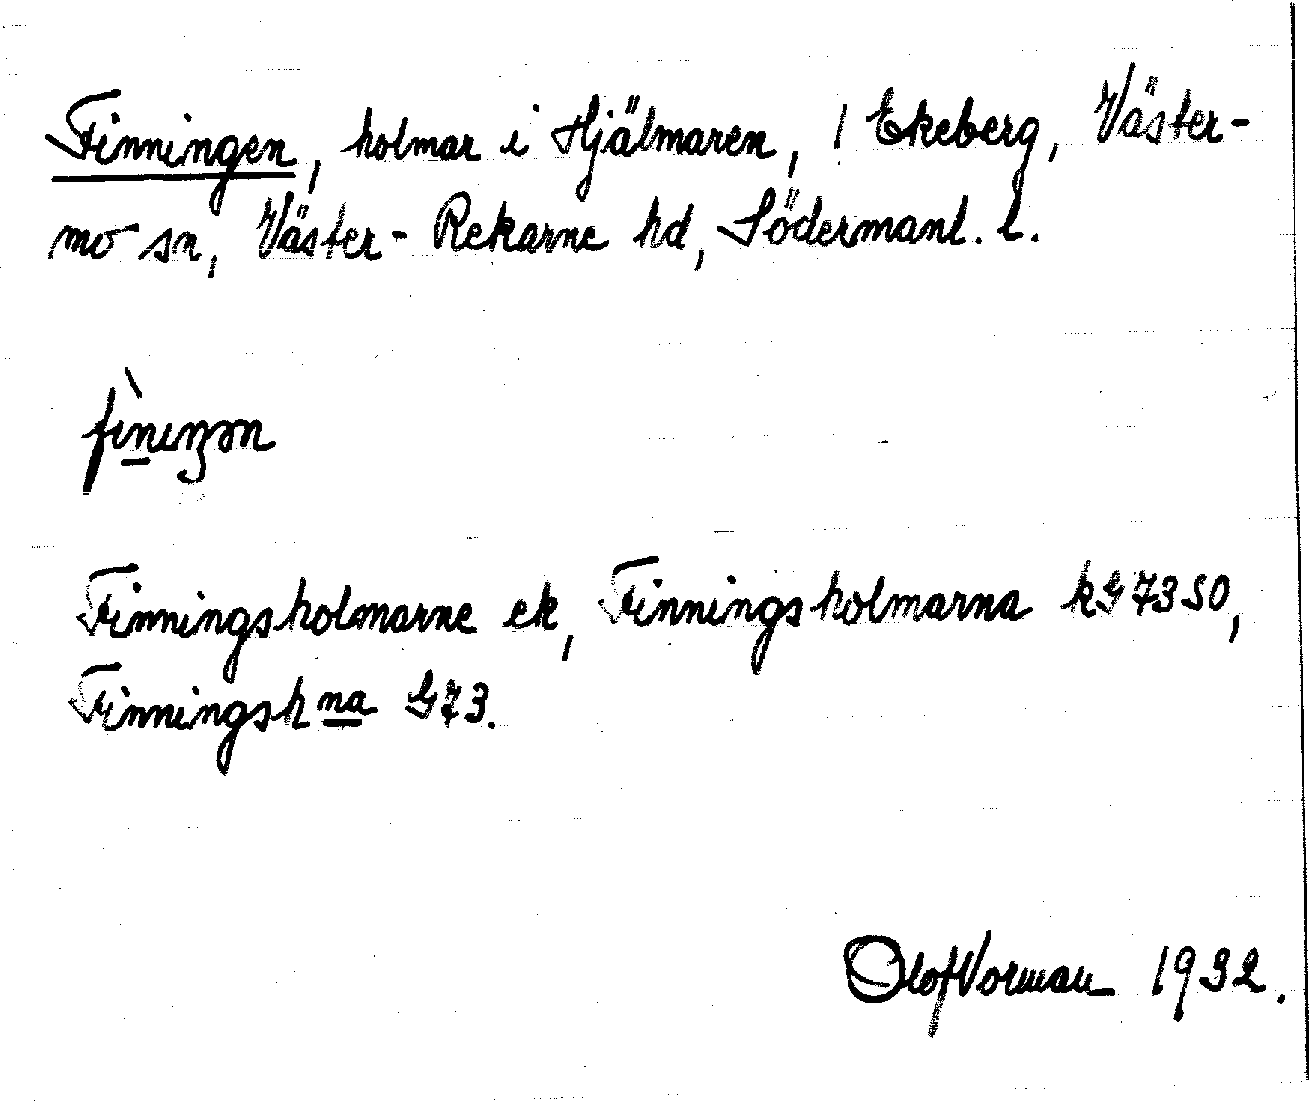 Finningen, holmar i Hjälmaren, / Ekeberg, Väster-
mo sn, Väster-Rekarne hd, Södermanl. l.
fìnıŋən
Finningsholmarne ek, Finningsholmarna kG 73 SO,
Finningsh na G 73.
Olof Vorman 1932.